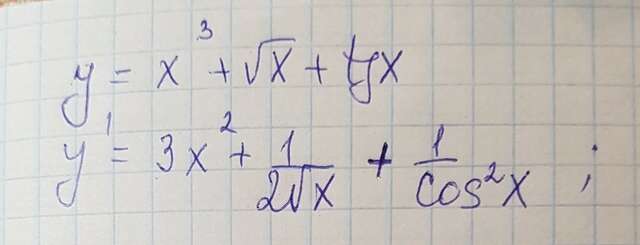 y = x³ + √x + tg x
y' = 3x² + 1/(2√x) + 1/cos²x ;